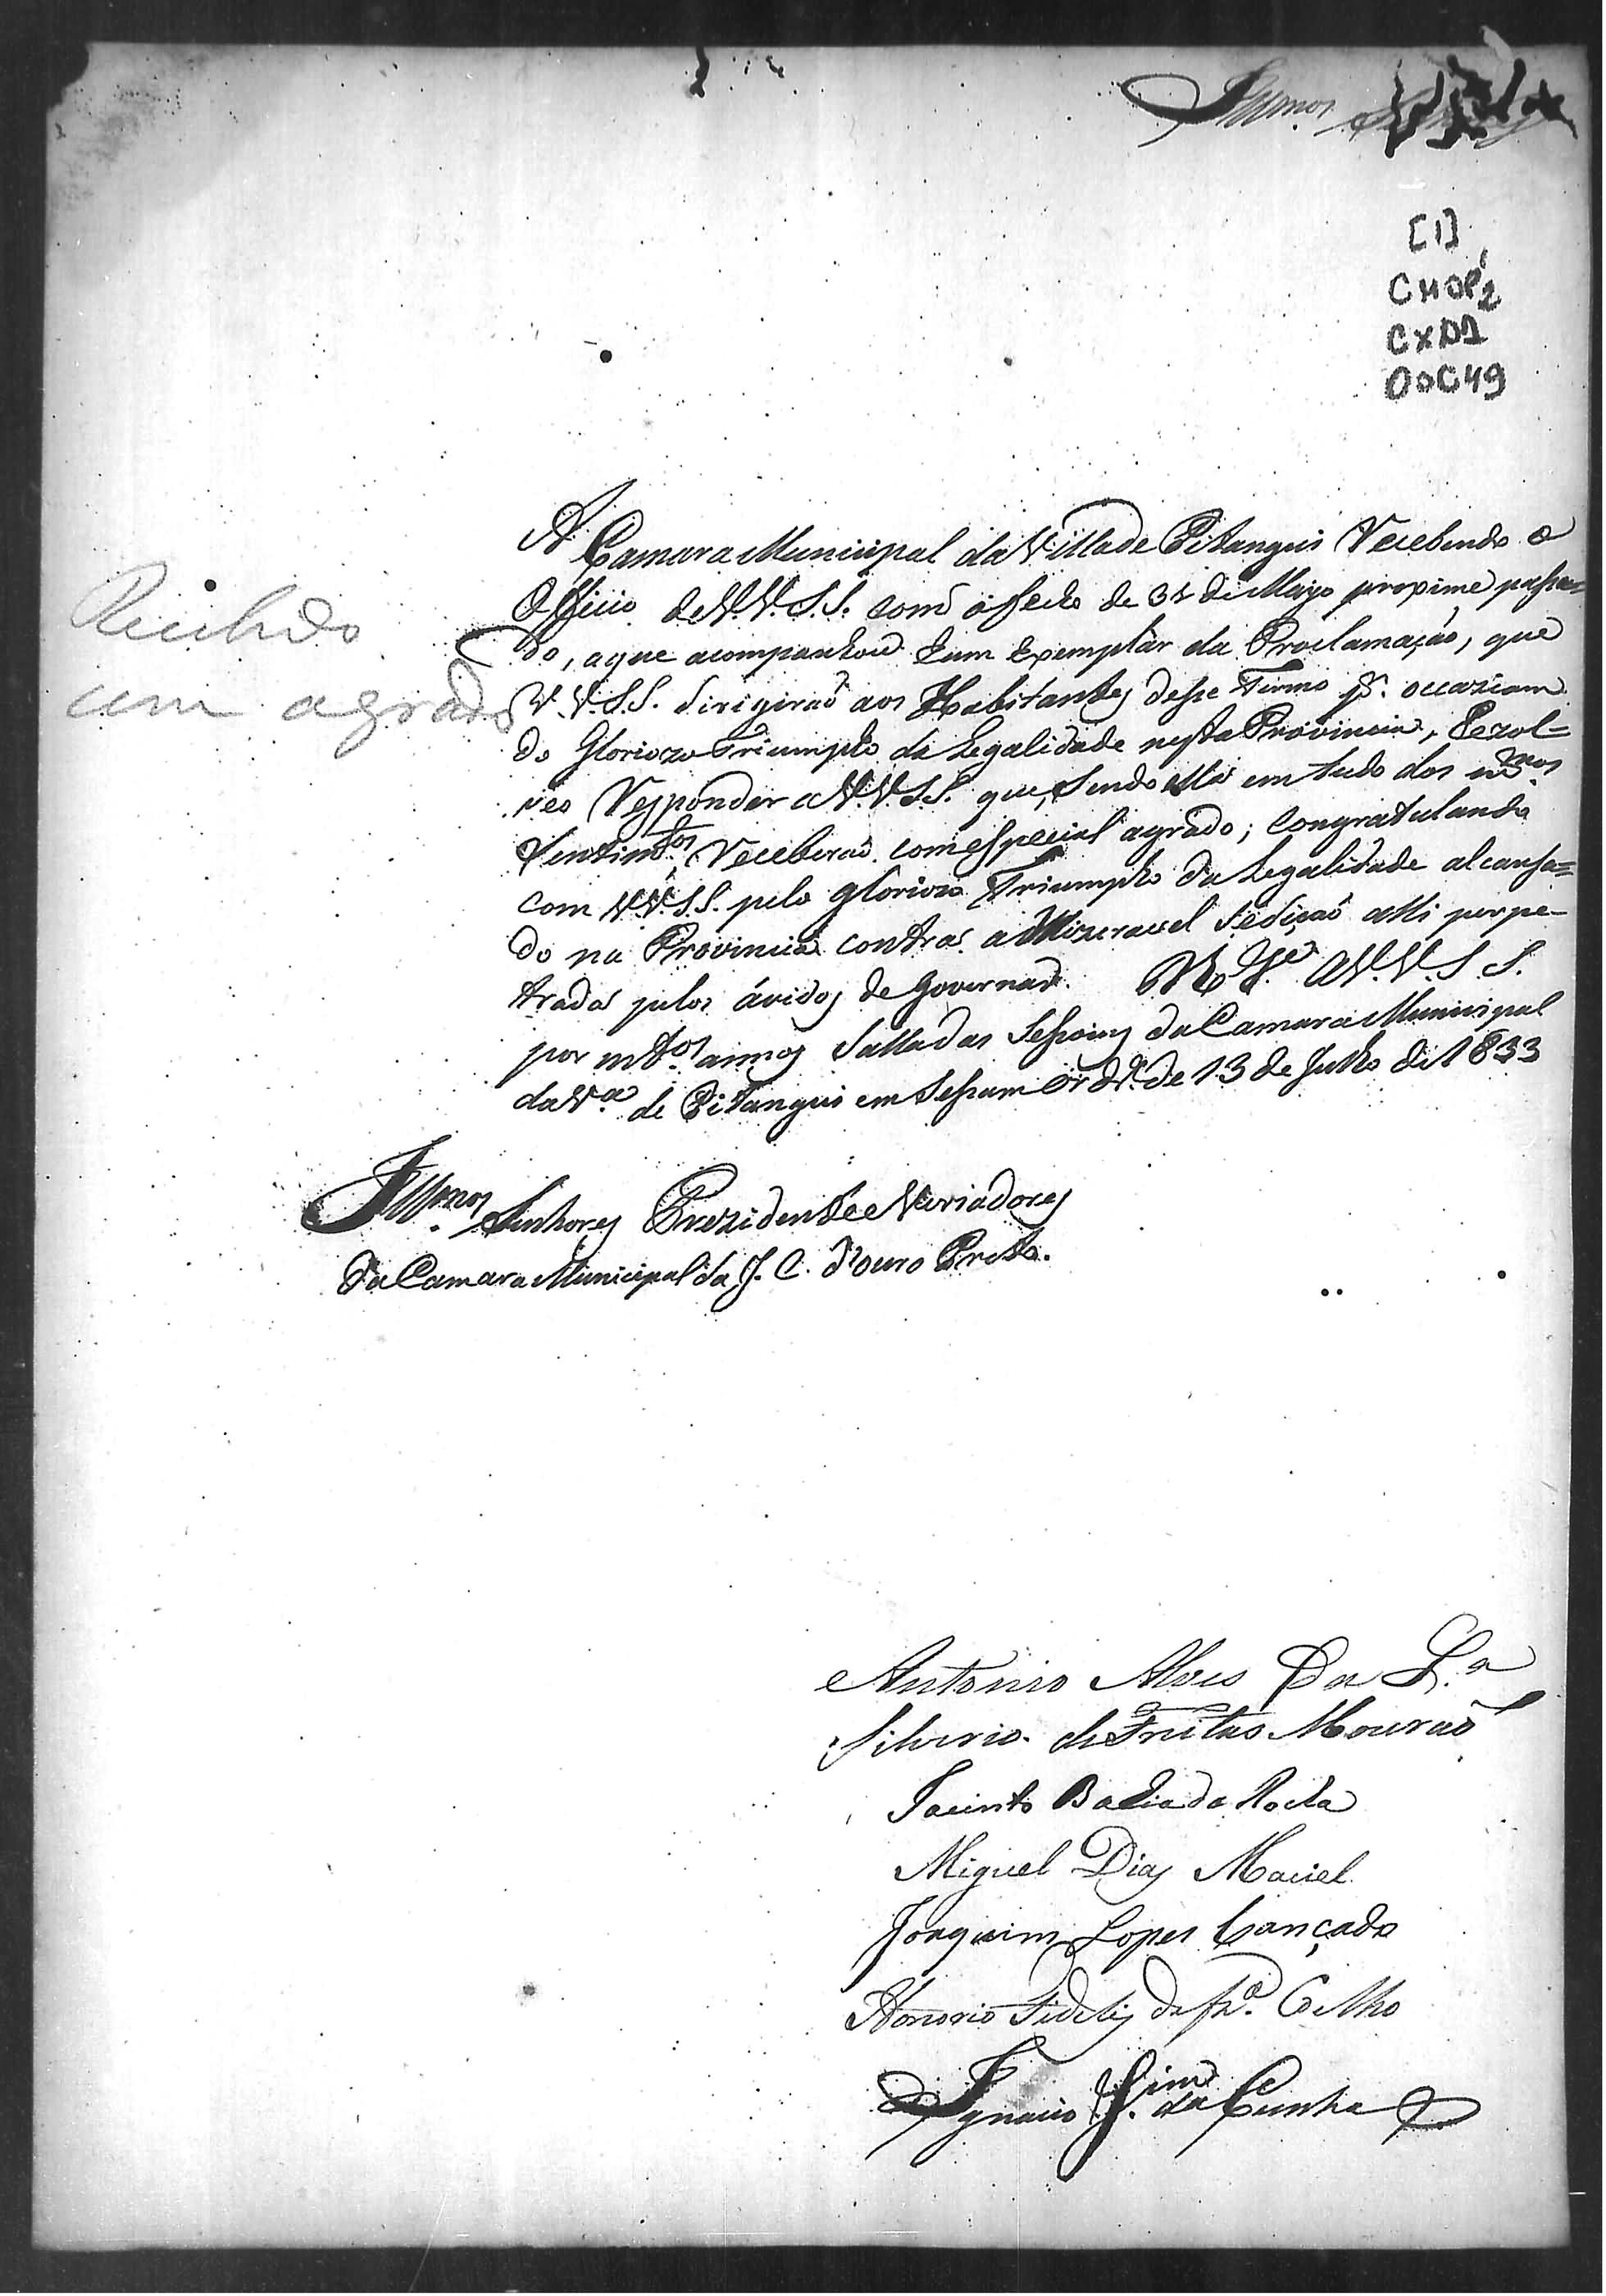 Illmos Senhores
[1]
CMOP2
CX01
DOC49
A Camara Municipal da Villa de Pitangui Recebendo o
Officio de V.V.S.S. com o fecho de 31 de Mayo proximo passa=
do, a que acompanhou hum Exemplar da Proclamação, que
V.V.S.S. dirigirão aos Habitantes desse Termo pr. occaziam
do Gloriozo Triumpho da Legalidade nesta Provincia, Rezol=
veo Responder a V.V.S.S. que, sendo ella em tudo dos mmos
Sentimtos, Receberão com especial agrado; Congratulando
com V.V.S.S. pelo glorioso Triumpho da Legalidade alcansa=
do na Provincia contra a Mizeravel Sedição alli perpe-
trada pelos ávidos de governar. Ds Ge. a V.V.S.S.
por mtos. annos Salla das Sessoins da Camara Municipal
da Va. de Pitangui em Sessam Ordra. de 13 de Julho de 1833
Recibido
com agrado
Illmos Senhores Prezidente e Veriadores
da Camara Municipal da I. C. d'ouro Preto.
Antonio Alves da Sa
Silverio de Freitas Mourão
Jacinto Bahia da Rocha
Miguel Dias Maciel
Joaquim Lopes Cançado
Honorio Fidelis da Coelho
Ignacio Jim. da Cunha